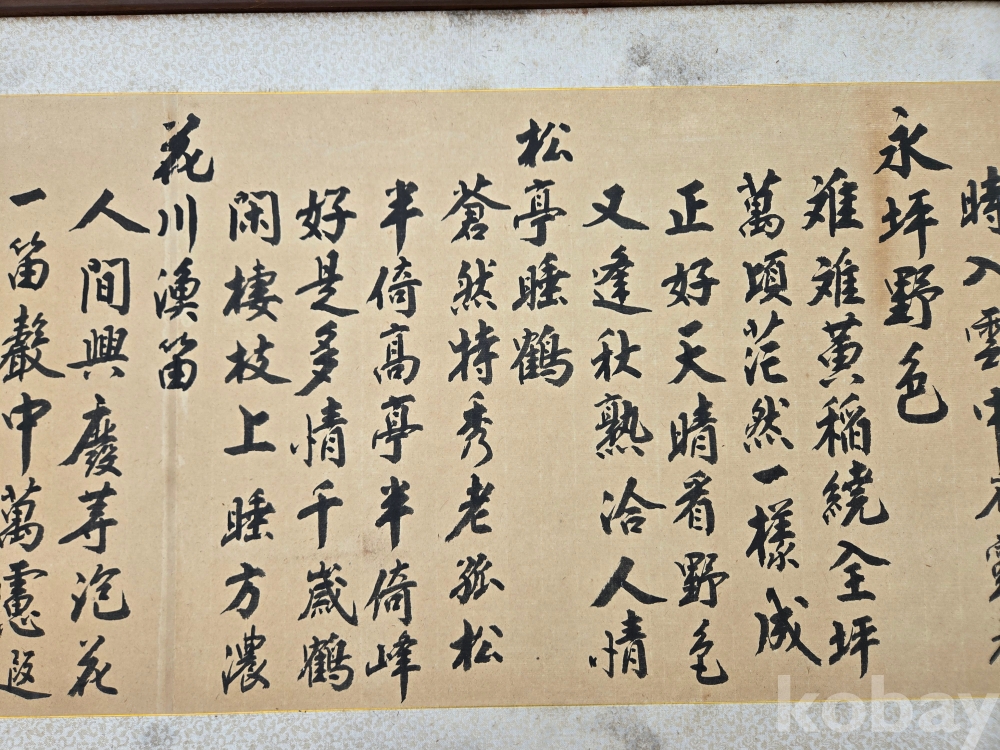 時入雲中
永坪野色
離離黃稻繞全坪
萬頃茫然一樣成
正好天晴看野色
又逢秋熟洽人情
松亭睡鶴
蒼然特秀老孤松
半倚高亭半倚峰
好是多情千歲鶴
閑棲枝上睡方濃
花川漁笛
人間興廢等泡花
一笛聲中萬慮遐
kobay